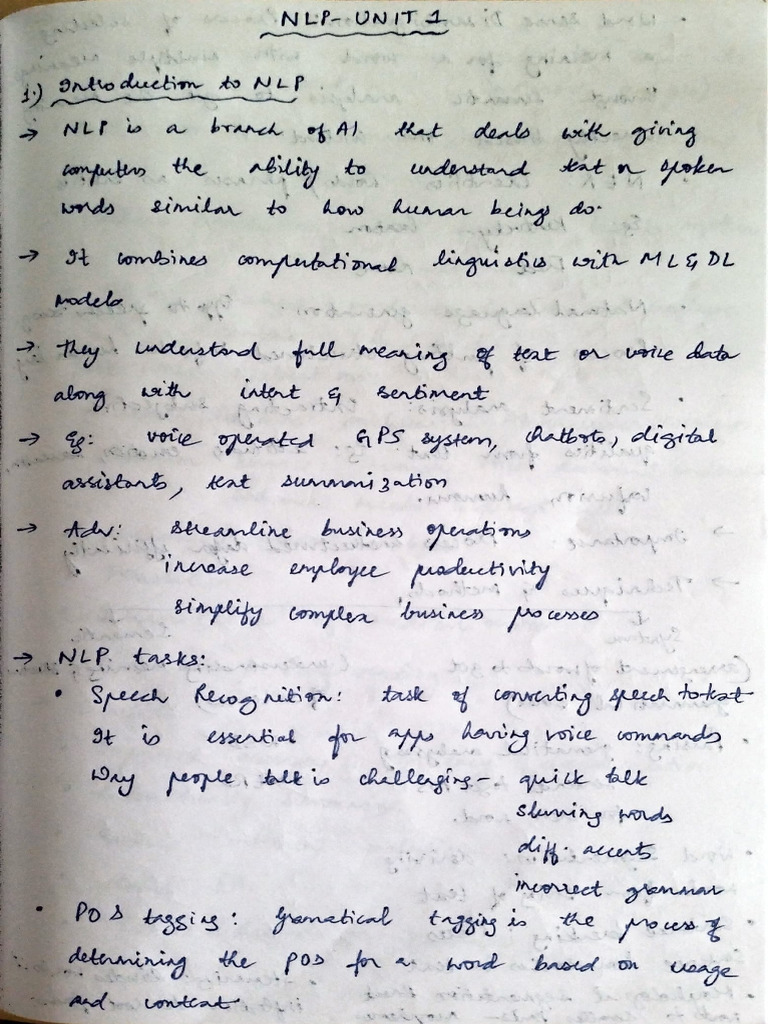 NLP-UNIT 1
1.) Introduction to NLP
→ NLP is a branch of AI that deals with giving
computers the ability to understand text or spoken
words similar to how human beings do.
→ It combines computational linguistics with ML & DL
models
→ They understand full meaning of text or voice data
along with intent & sentiment
→ Eg: voice operated GPS system, chatbots, digital
assistants, text summarization
→ Adv: streamline business operations
increase employee productivity
simplify complex business processes
→ NLP tasks:
• Speech Recognition: task of converting speech to text
It is essential for apps having voice commands
Way people talk is challenging - quick talk
slurring words
diff. accents
incorrect grammar
• POS tagging: Gramatical tagging is the process of
determining the POS for a word based on usage
and context.